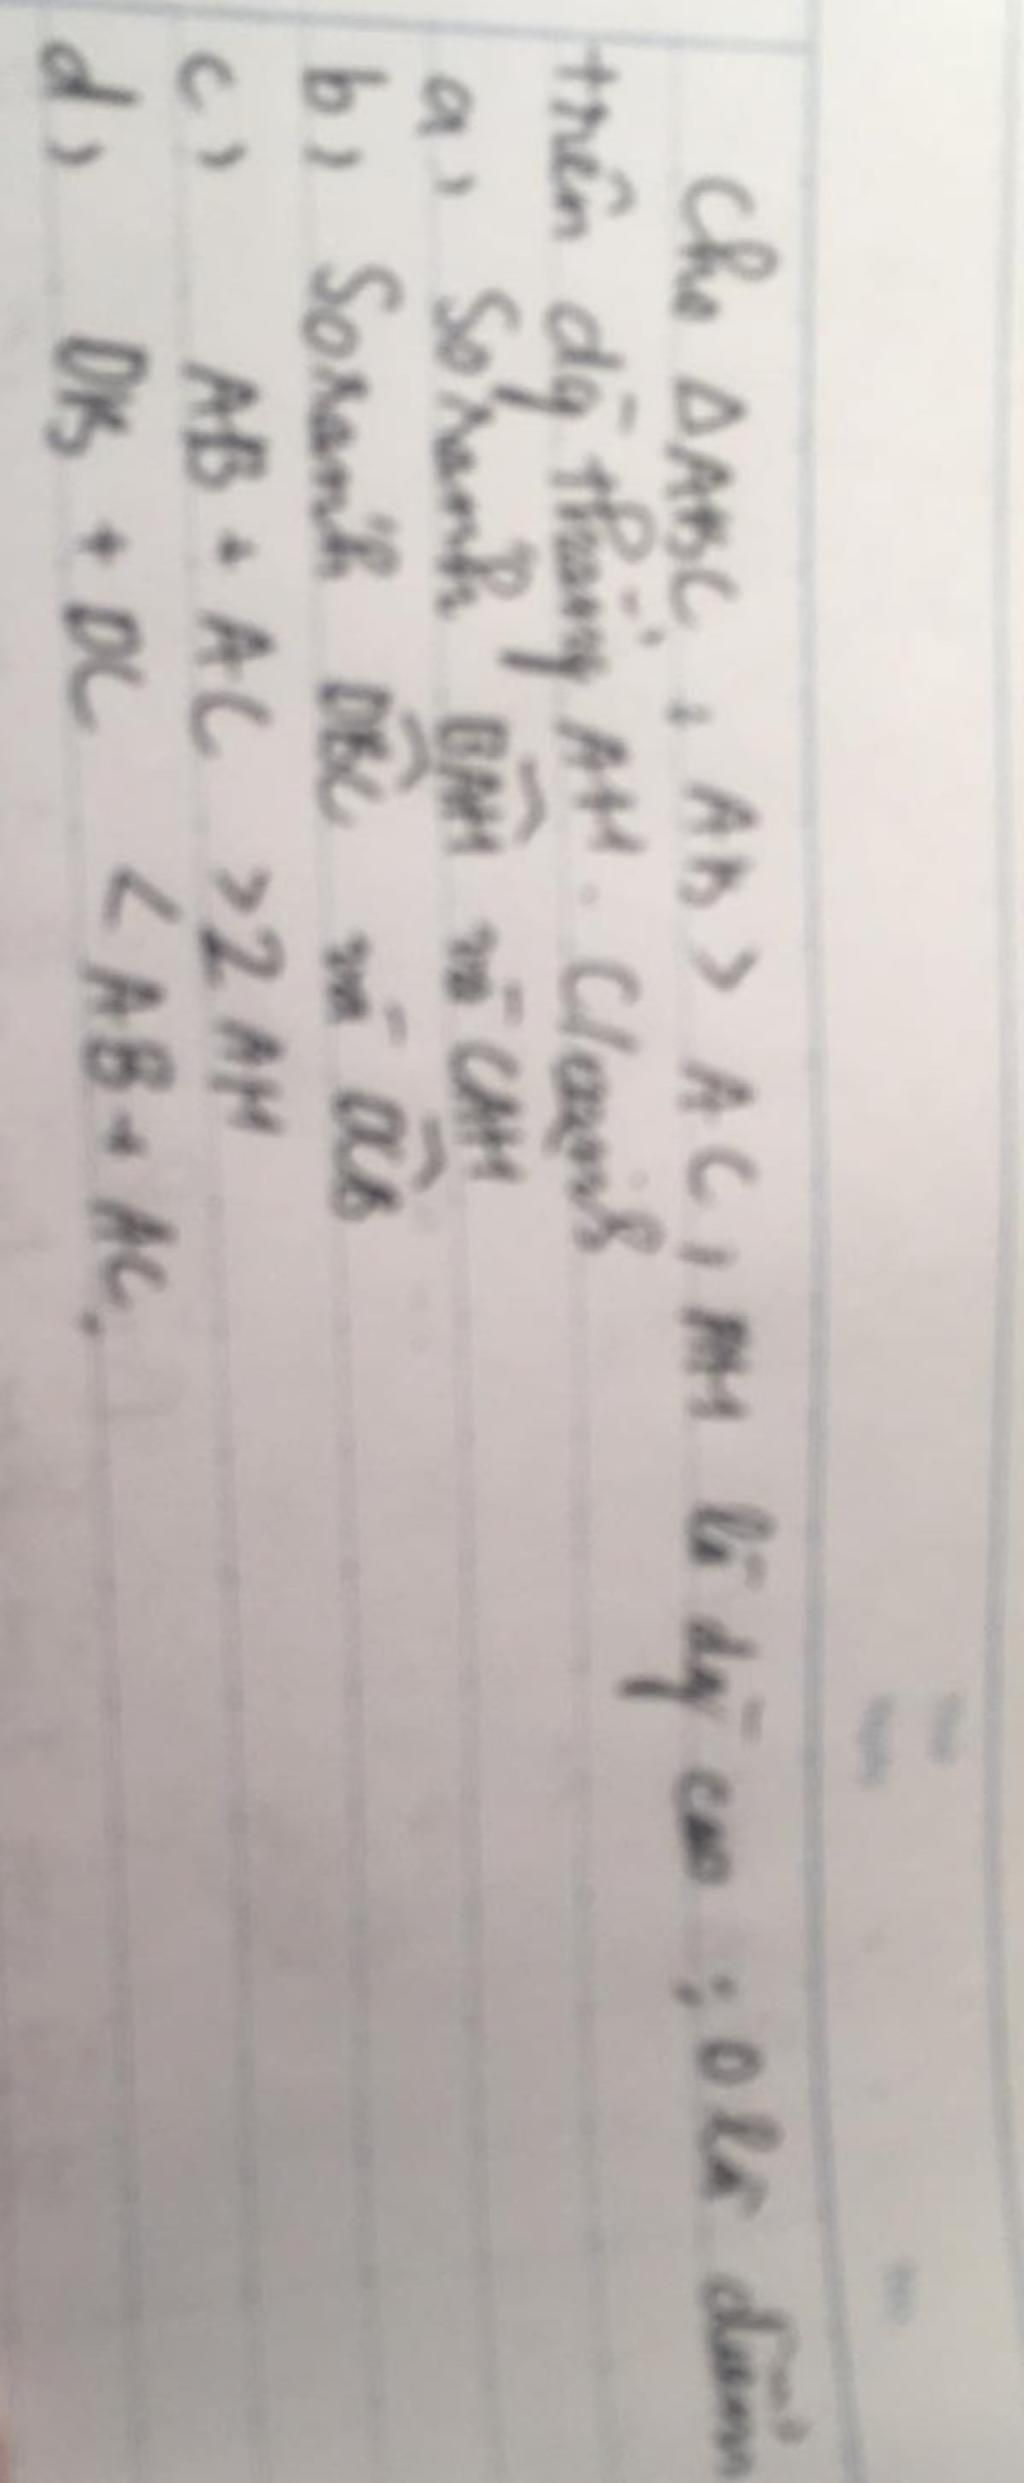 Cho ΔABC, AB > AC, AH là đg cao; D là điểm
trên đg thẳng AH. C/minh
a, So sánh BAH và CAH
b, So sánh DBC và DCB
c, AB + AC > 2AH
d, DB + DC < AB + AC.